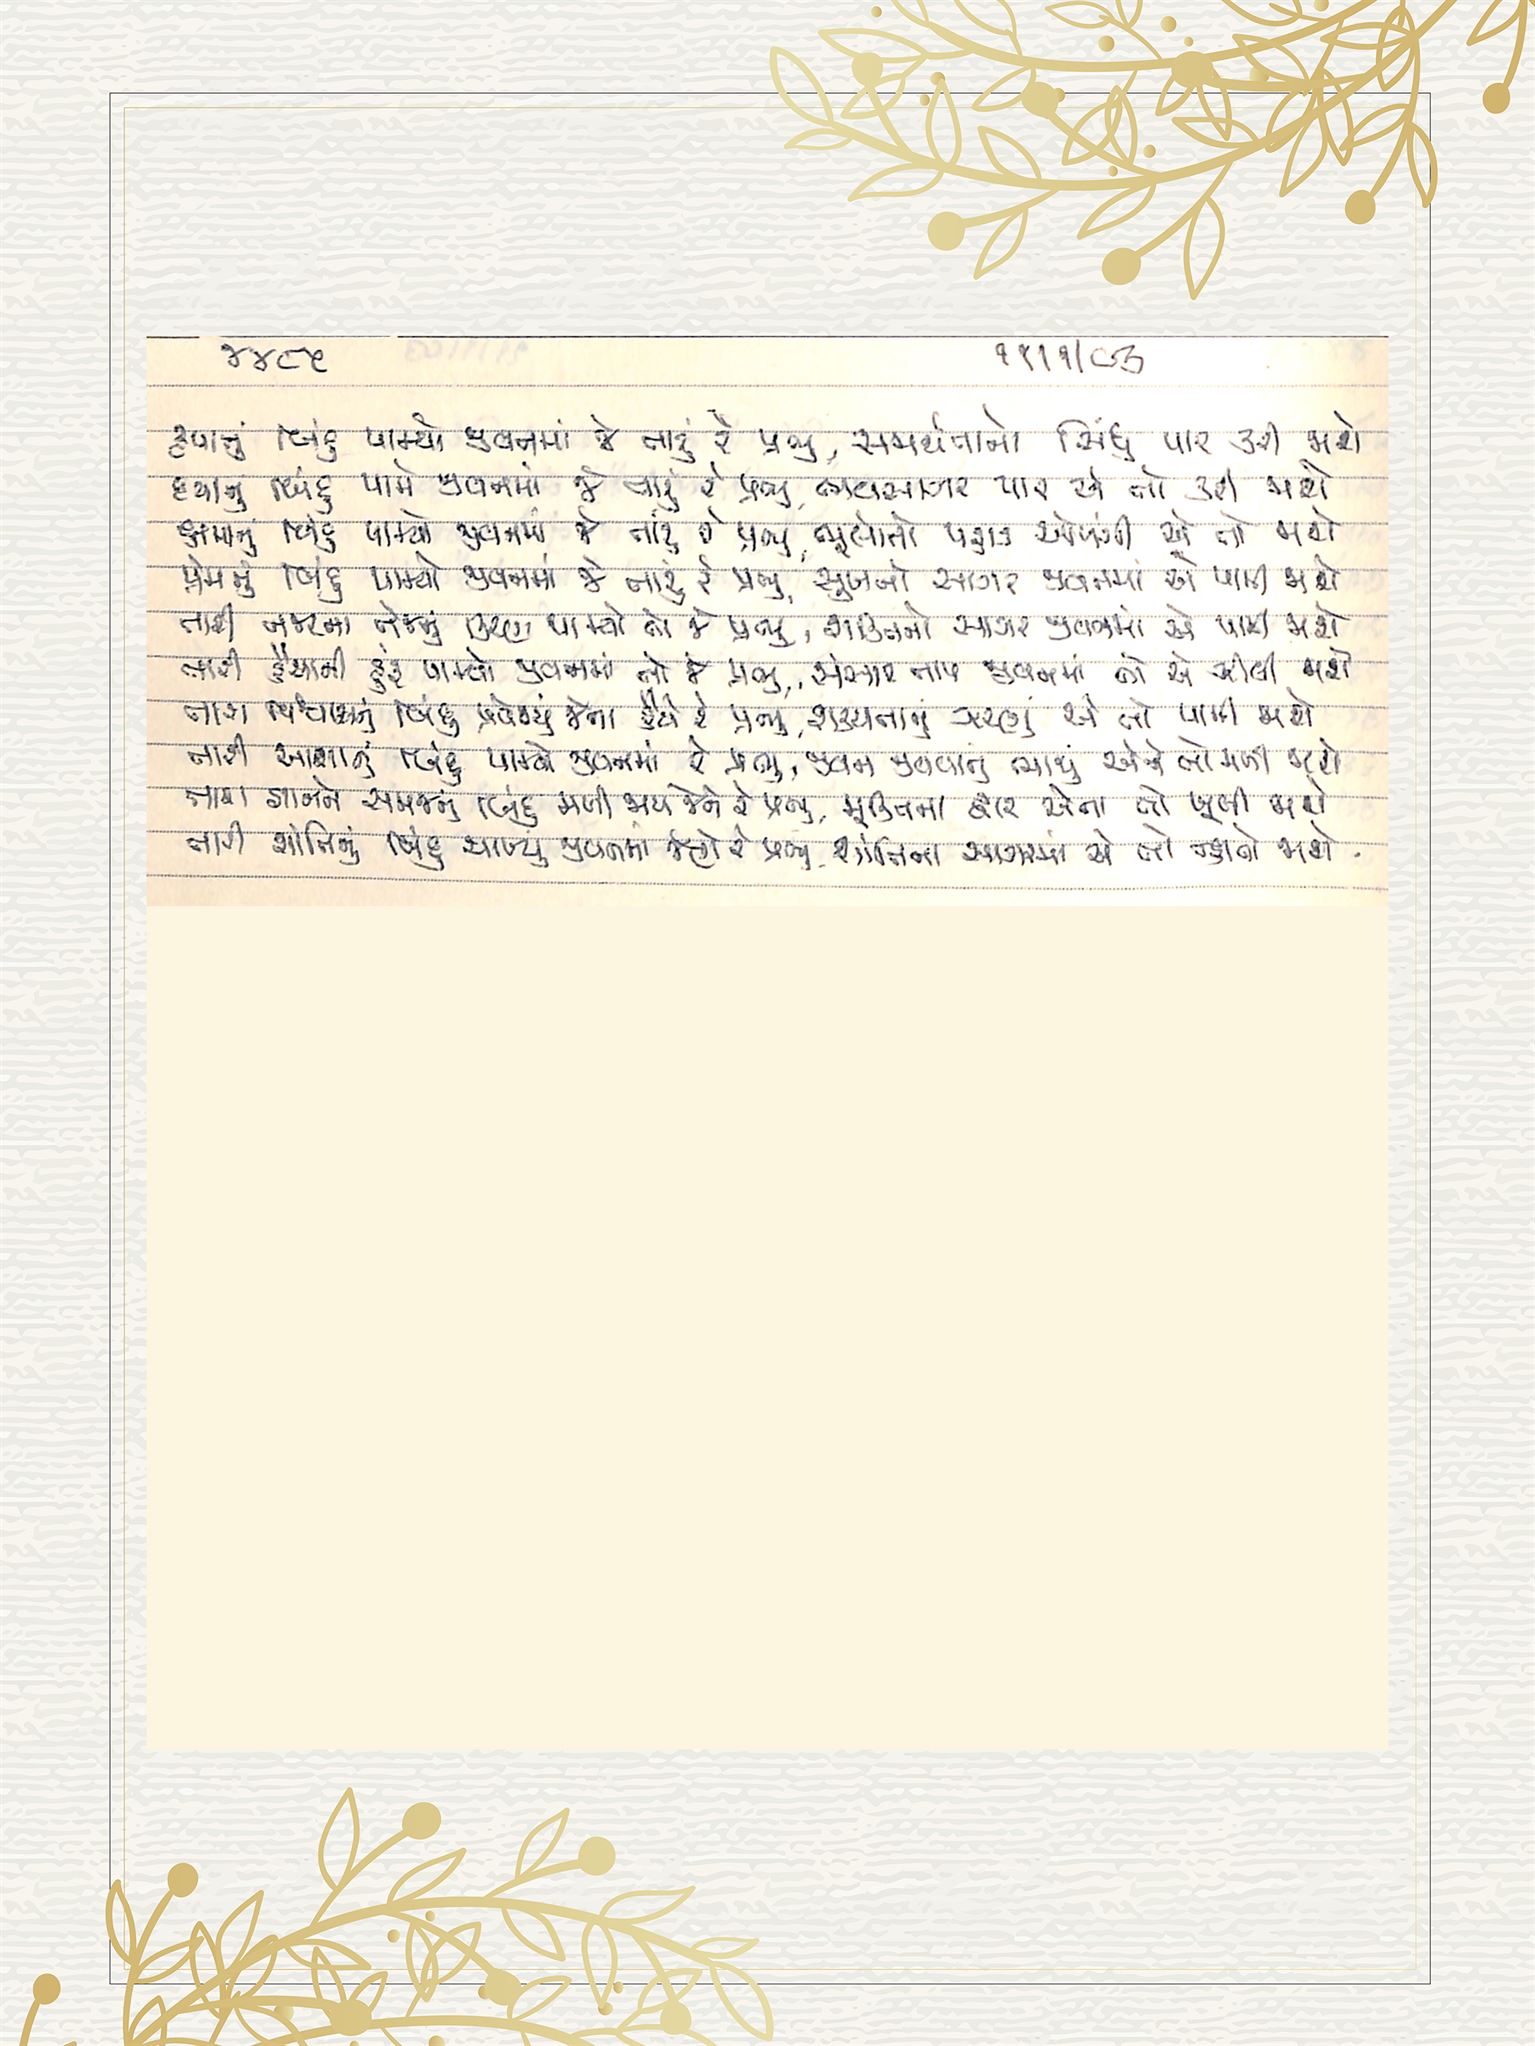 ૪૪૮૫ ૧૫।૧।૯૩
કૃપાનું બિંદુ પામ્યો જીવનમાં જે તારું રે પ્રભુ, સમર્થતાનો સિંધુ પાર કરી જાશે
દયાનું બિંદુ પામે જીવનમાં જે તારું રે પ્રભુ, ભવસાગર પાર એ તો કરી જાશે
ક્ષમાનું બિંદુ પામ્યો જીવનમાં જે તારું રે પ્રભુ, ભૂલોનો પહાડ ઓળંગી એ તો જાશે
પ્રેમનું બિંદુ પામ્યો જીવનમાં જે તારું રે પ્રભુ, સુખનો સાગર જીવનમાં એ પામી જાશે
તારી નજરના તેજનું કિરણ પામ્યો તો જે પ્રભુ, શક્તિનો સાગર જીવનમાં એ પામી જાશે
તારી હૈયાની હૂંફ પામ્યો જીવનમાં તો જે પ્રભુ, સંસાર તાપ જીવનમાં તો એ ઝીલી જાશે
તારા વિશ્વાસનું બિંદુ પ્રવેશ્યું જેના હૈયે રે પ્રભુ, શક્યતાનું ઝરણું એ તો પામી જાશે
તારી આશાનું બિંદુ પામ્યો જીવનમાં રે પ્રભુ, જીવન જીવવાનું ભાથું એને તો મળી જાશે
તારા જ્ઞાનને સમજનું બિંદુ મળી જાય જેને રે પ્રભુ, મુક્તિના દ્વાર એના તો ખૂલી જાશે
તારી શાંતિનું બિંદુ ચાખ્યું જીવનમાં જેણે રે પ્રભુ, શાંતિના સાગરમાં એ તો ન્હાતો જાશે.